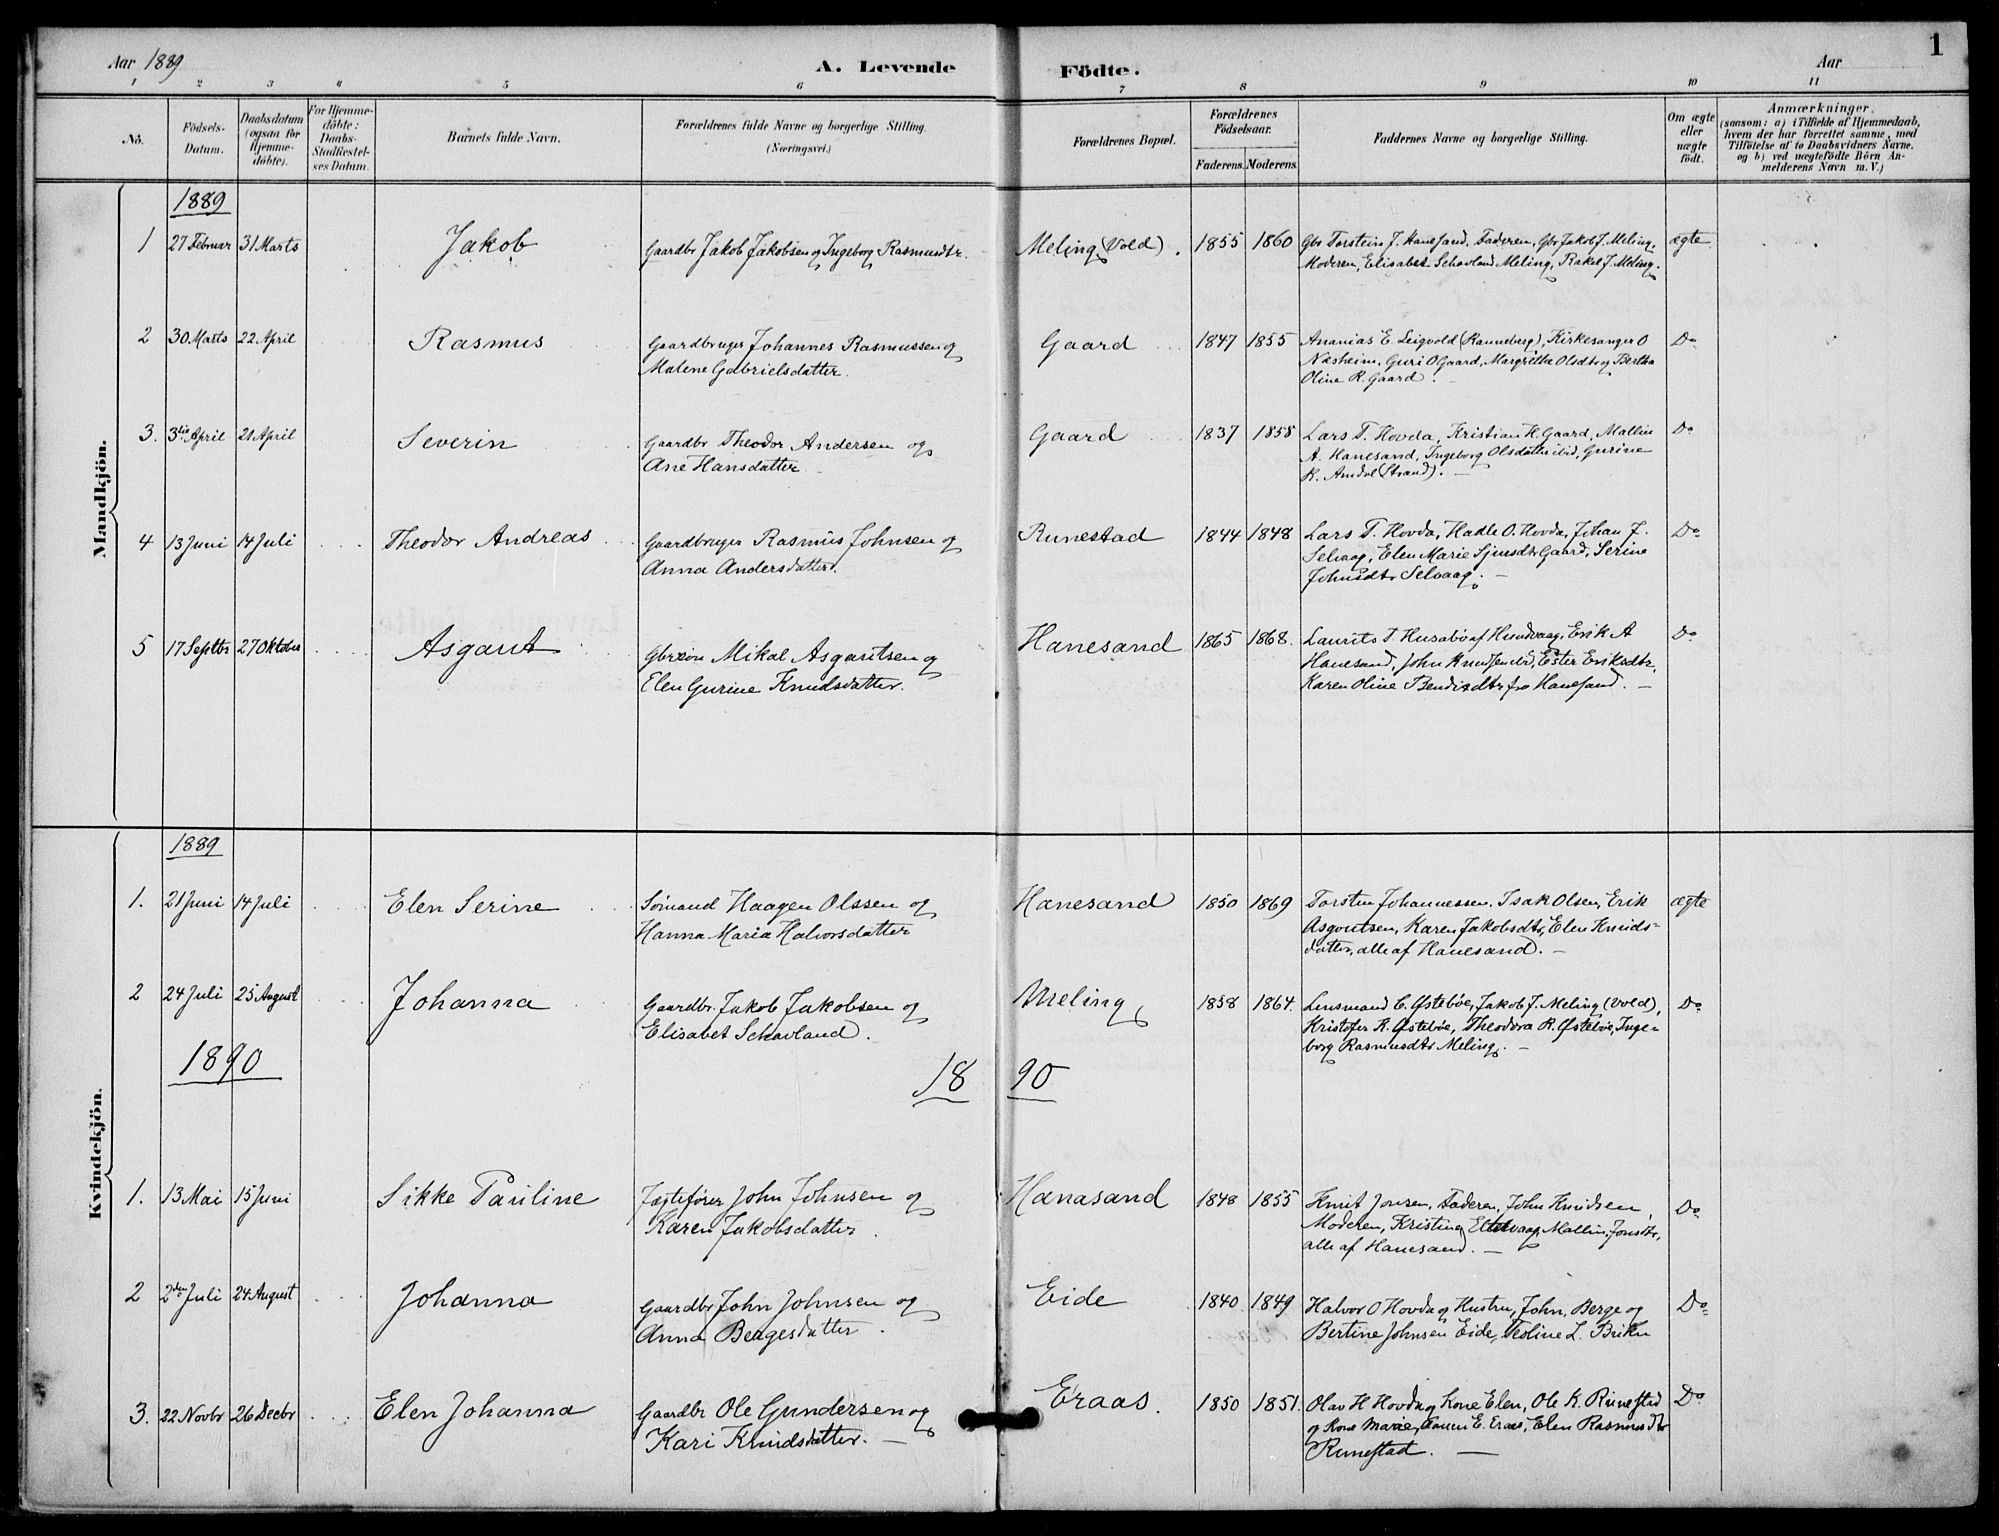 Aar 1889
A. Levende Födte.
Aar
1
1 2 3 4 5 6 7 8 9 10 11
No. | Födsels-Datum. | Daabsdatum (ogsaa for Hjemmedöbte). | For Hjemmedöbte: Daabs-Stadfæstelses Datum. | Barnets fulde Navn. | Forældrenes fulde Navne og borgerlige Stilling. (Næringsvei.) | Forældrenes Bopæl. | Forældrenes Födselsaar. Faderens. Moderens. | Faddernes Navne og borgerlige Stilling. | Om ægte eller uægte födt. | Anmærkninger. (saasom: a) i Tilfælde af Hjemmedaab, hvem der har forrettet samme, med Tilföielse af to Daabsvidners Navne. og b) ved uægtefödte Börn Anmelderens Navn m. V.)
Mandkjön.
1889
1 27 Februar 31 Marts Jakob Gaardbr Jakob Jakobsen og Ingeborg Rasmusdtr. Meling (Vold). 1855 1860 Gbr Torstein J. Hanesand, Faderen, Gbr Jakob J. Meling, ægte
Moderen, Elisabet Schavland Meling, Rakel J. Meling.
2 30 Marts 22 April Rasmus Gaardbruger Johannes Rasmussen og Gaard 1847 1855 Ananias E. Leigvold (Ranneberg), Kirkesanger O Do
Malene Gabrielsdatter. Næsheim, Guri O Gaard, Margrethe Olsdtr og Bertha
Oline R. Gaard.
3. 3die April 21 April Severin Gaardbr Theodor Andersen og Gaard 1837 1858 Lars T. Hovda, Kristian H. Gaard, Mallin Do
Ane Hansdatter A. Hanesand, Ingeborg Olsdatter ibid, Gurine
R. Amdal (Strand).
4 13 Juni 14 Juli Theodor Andreas Gaardbruger Rasmus Johnsen og Runestad 1844 1848 Lars T. Hovda, Hadle O. Hovda, Johan J. Do
Anna Andersdatter. Selvaag, Elen Marie Sjursdtr Gaard, Serine
Johnsdtr Selvaag.
5 17 Septbr 27 Oktober Asgaut Mikal Asgautsen og Hanesand 1865 1868. Laurits T. Husabö af Hundvaag, Erik A Do
Elen Gurine Knudsdatter. Hanesand, John Knudsen ibid, Ester Eriksdtr,
Karen Oline Bendixdtr fra Hanesand.
Kvindekjön.
1889
1. 21 Juni 14 Juli Elen Serine Sömand Haagen Olssen og Hanesand 1850 1869 Torsten Johannessen, Isak Olsen, Erik ægte
Hanna Maria Halvorsdatter Asgautsen, Karen Jakobsdtr, Elen Knuds-
datter, alle af Hanesand.
2 24 Juli 25 August Johanna Gaardbr. Jakob Jakobsen og Meling 1858 1864. Lensmand C. Østebøe, Jakob J. Meling (Vold), Do
Elisabet Schavland. Kristofer R. Østebøe, Theodora R. Østebøe, Inge-
borg Rasmusdtr Meling.
1890 18 90
1. 13 Mai 15 Juni Sikke Pauline Jagtefører John Johnsen og Hanasand 1848 1855 Knut Jonsen, Faderen, John Knudsen, Do
Karen Jakobsdatter. Moderen, Kristine Eltervaag, Mallin Jonsdtr,
alle af Hanesand.
2 2den Juli 24 August Johanna Gaardbr John Johnsen og Eide 1840 1849 Halvor O Hovda og Hustru, John, Berge og Do
Anna Bergesdatter. Bertine Johnsen Eide, Teoline L. Brikn
3. 22 Novbr 26 Decbr Elen Johanna Gaardbr Ole Gundersen og Eraas. 1850 1851. Olav H Hovda og Kone Elen, Ole K. Runestad Do
Kari Knudsdatter. og Kone Marie, E. Eraas, Elen Rasmusdtr
Runestad.